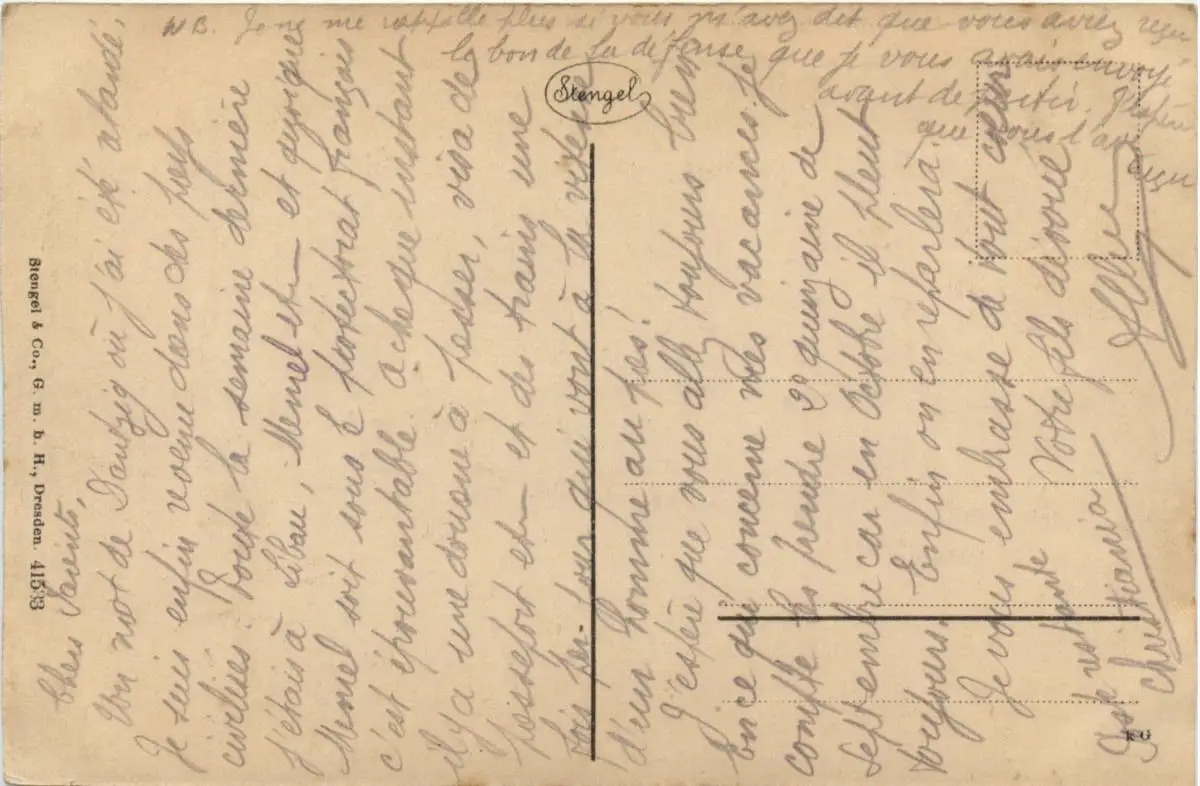 Chers Parents,
Un mot de Dantzig où j'ai été
Je suis enfin revenu dans des pays
civilisés. Toute la semaine dernière
j'étais à Libau, Memel etc— et quoique
Memel soit sous le protectorat français
c'est épouvantable. A chaque instant
il y a une douane à passer, visa de
passeport etc— et des trains une
fois par jour qui vont à la vitesse
d'un homme au pas!
J'espère que vous allez toujours bien
En ce qui concerne mes vacances je
compte les prendre 2e quinzaine de
septembre car en Octobre il pleut
toujours. Enfin on en reparlera.
Je vous embrasse de tout cœur
Votre fils dévoué
Poste restante
Christiania
NB. Je ne me rappelle plus si vous m'avez dit que vous aviez reçu
le bon de la défense que je vous avais envoyé
avant de partir. J'espère
que vous l'avez
reçu
Stengel
Stengel & Co., G. m. b. H., Dresden. 41533
R G